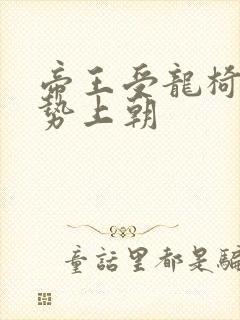 帝王受龍椅
勢上朝
童話里都是騙